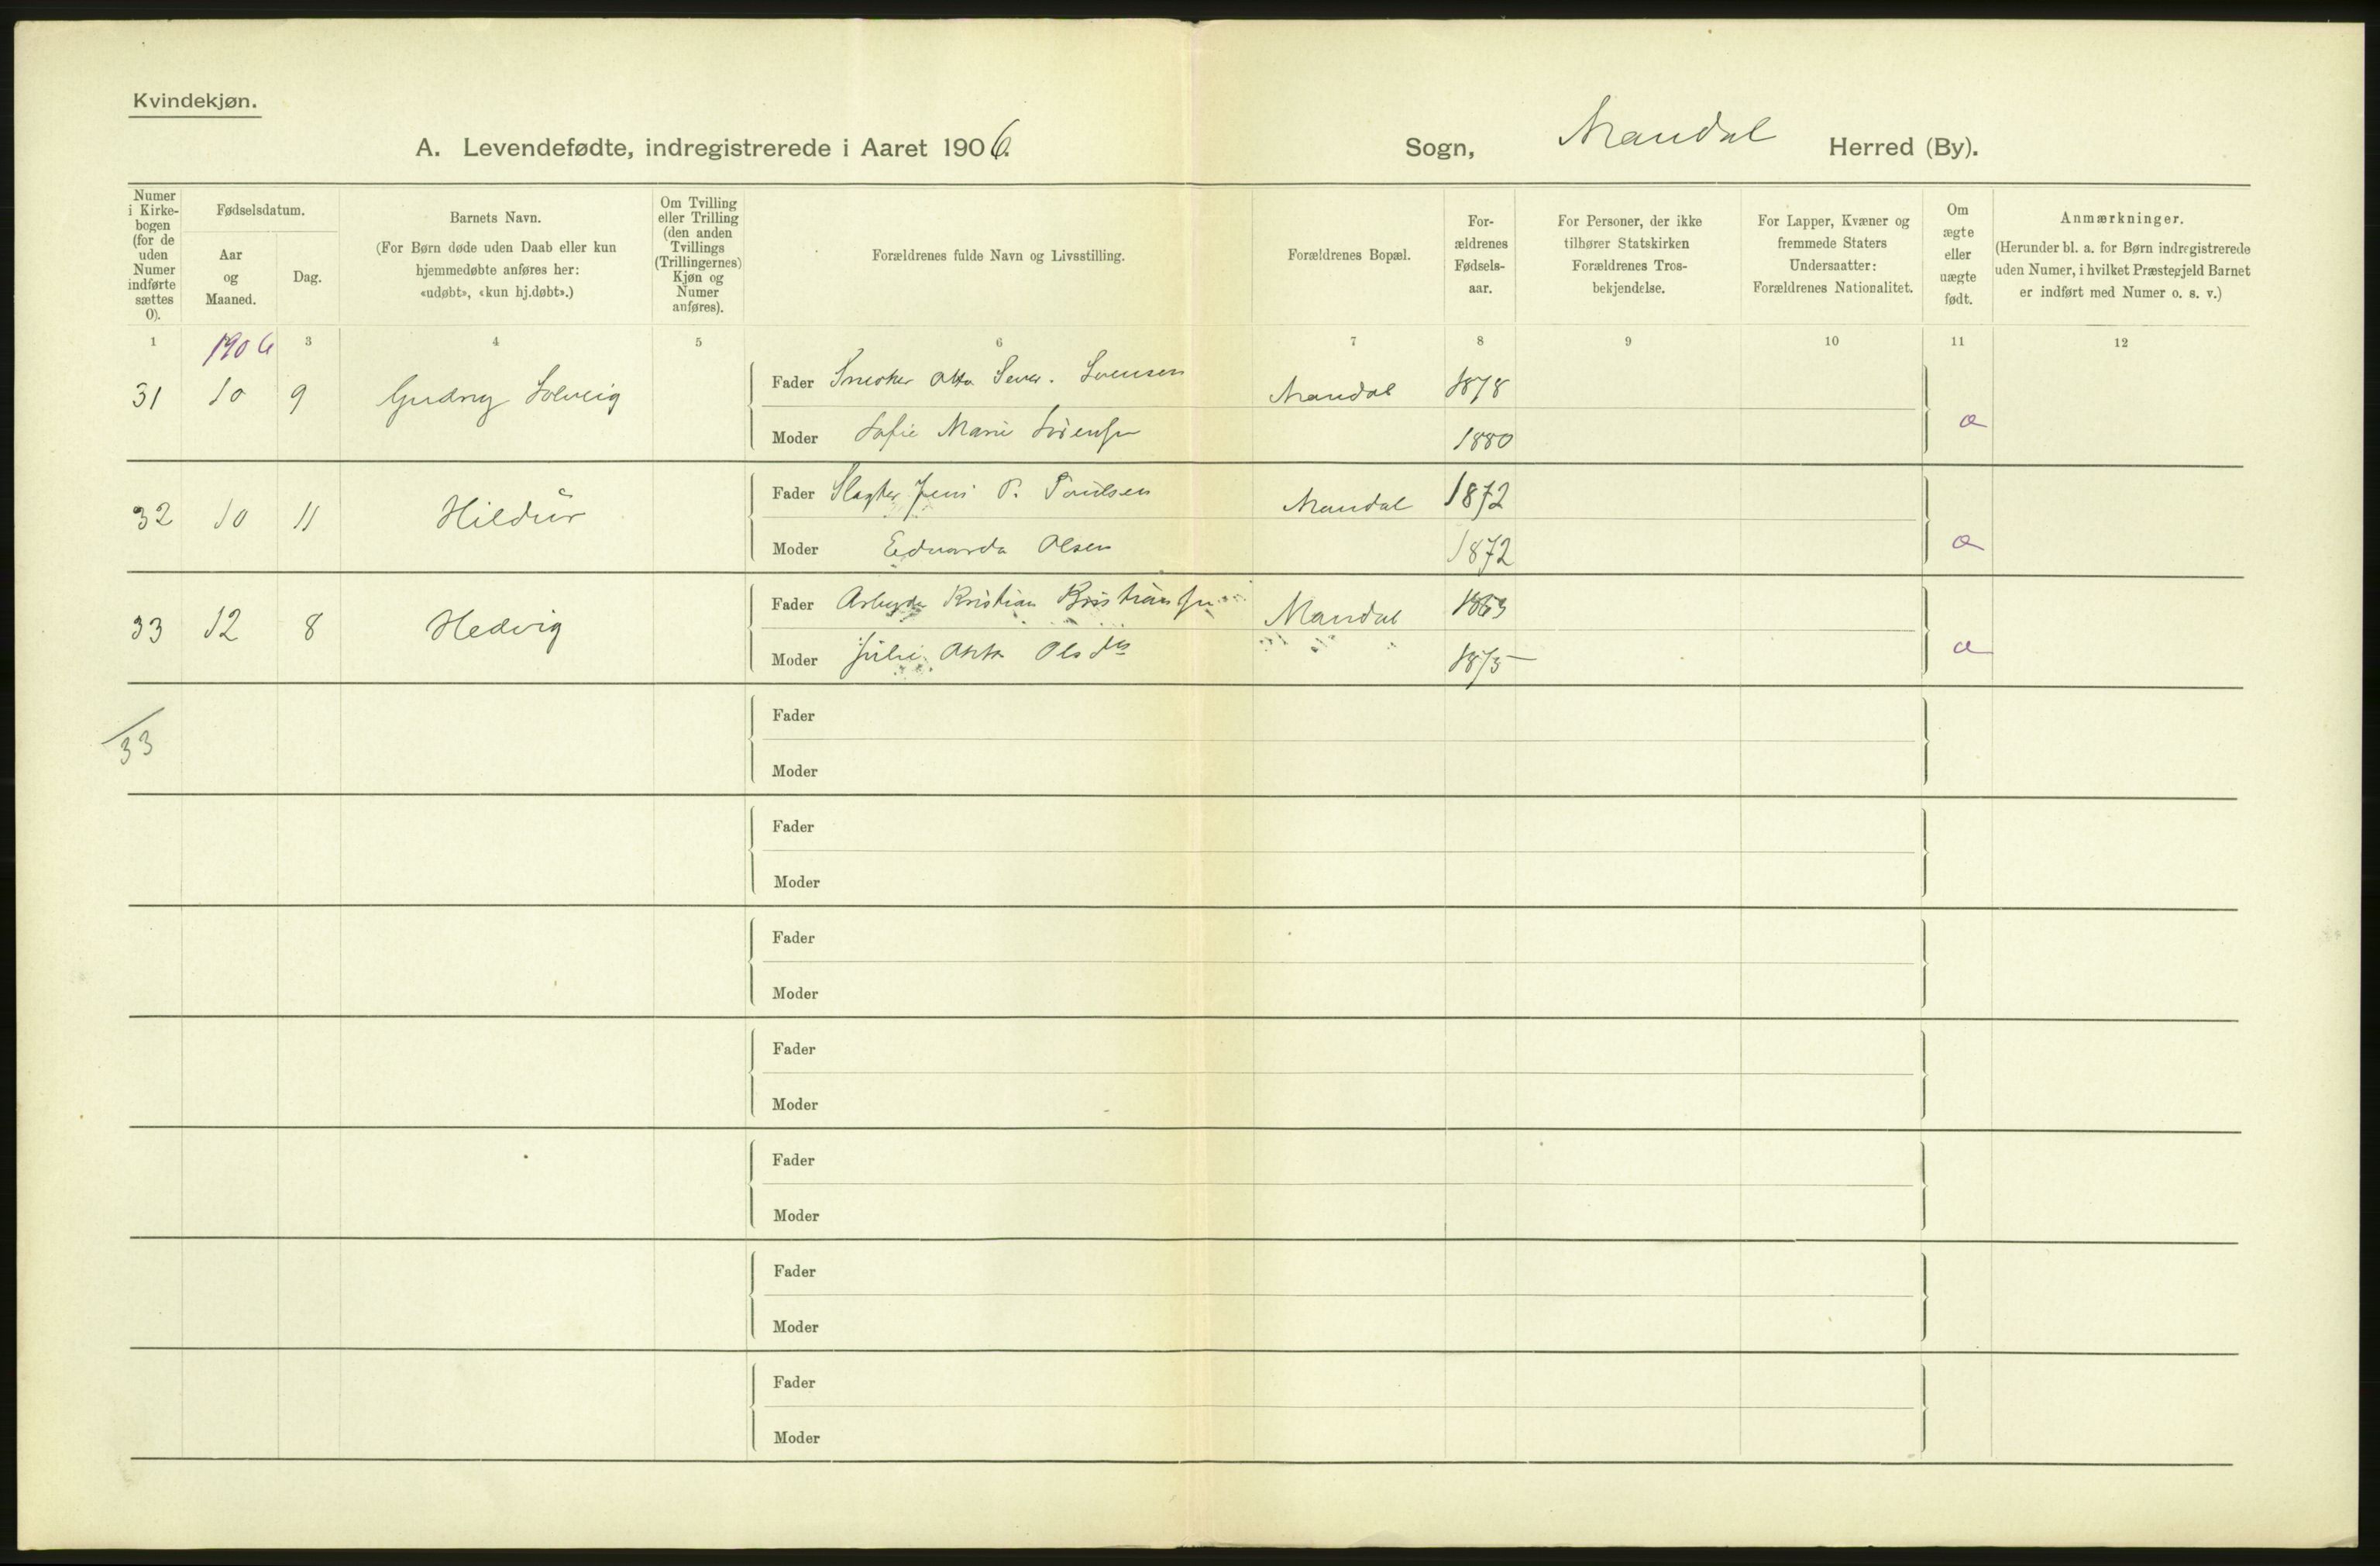 Kvindekjøn.
A. Levendefødte, indregistrerede i Aaret 1906.
Sogn, Mandal Herred (By).
Numer i Kirke-bogen (for de uden Numer indførte sættes 0).
Fødselsdatum.
Aar og Maaned.
Dag.
Barnets Navn.
(For Børn døde uden Daab eller kun hjemmedøbte anføres her: «udøbt», «kun hj.døbt».)
Om Tvilling eller Trilling (den anden Tvillings (Trillingernes) Kjøn og Numer anføres).
Forældrenes fulde Navn og Livsstilling.
Forældrenes Bopæl.
For-ældrenes Fødsels-aar.
For Personer, der ikke tilhører Statskirken Forældrenes Tros-bekjendelse.
For Lapper, Kvæner og fremmede Staters Undersaatter: Forældrenes Nationalitet.
Om ægte eller uægte født.
Anmærkninger.
(Herunder bl. a. for Børn indregistrerede uden Numer, i hvilket Præstegjeld Barnet er indført med Numer o. s. v.)
1 1906 3 4 5 6 7 8 9 10 11 12
31 10 9 Gudny Solveig Fader Snedker Otto Sever. Sørensen Mandal 1878
Moder Sofie Marie Sörensen 1880
32 10 11 Hildur Fader Slagter Jens P. Poulsen Mandal 1872
Moder Eduarda Olsen 1872
33 12 8 Hedvig Fader Arbeyder Kristian Kristiansen Mandal
Moder Julie Olsdtr 1875
33
Fader
Moder
Fader
Moder
Fader
Moder
Fader
Moder
Fader
Moder
Fader
Moder
Fader
Moder